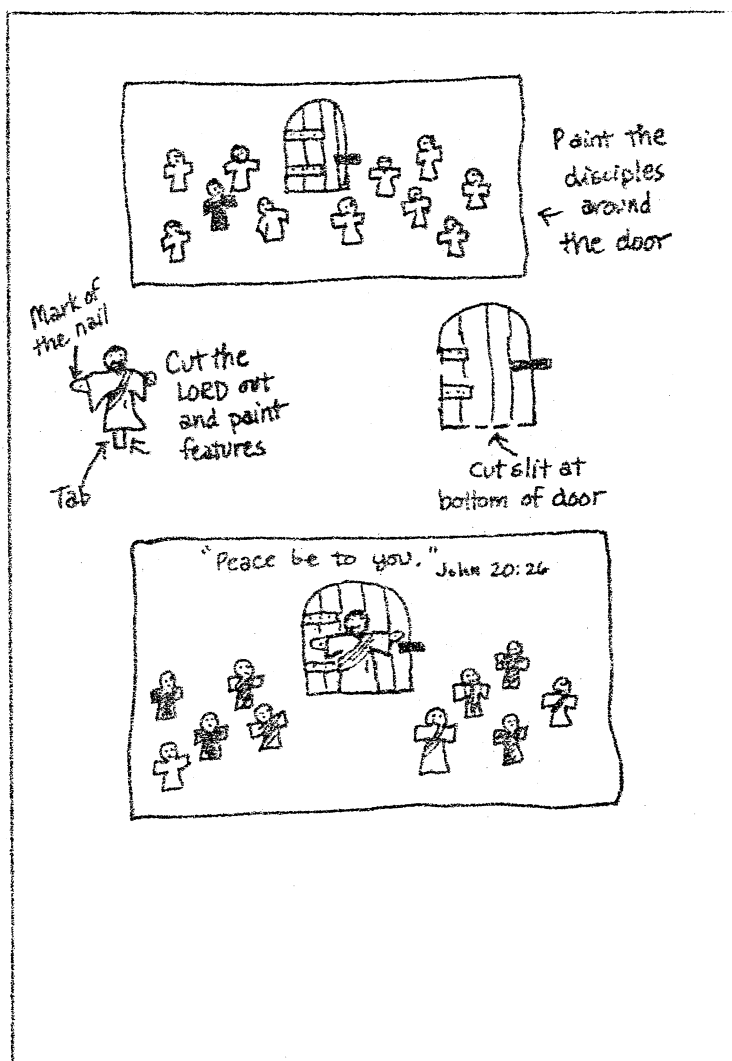 Paint the
disciples
around
the door
Mark of
the nail
Cut the
LORD out
and paint
features
Tab
Cut slit at
bottom of door
"Peace be to you."
John 20:26